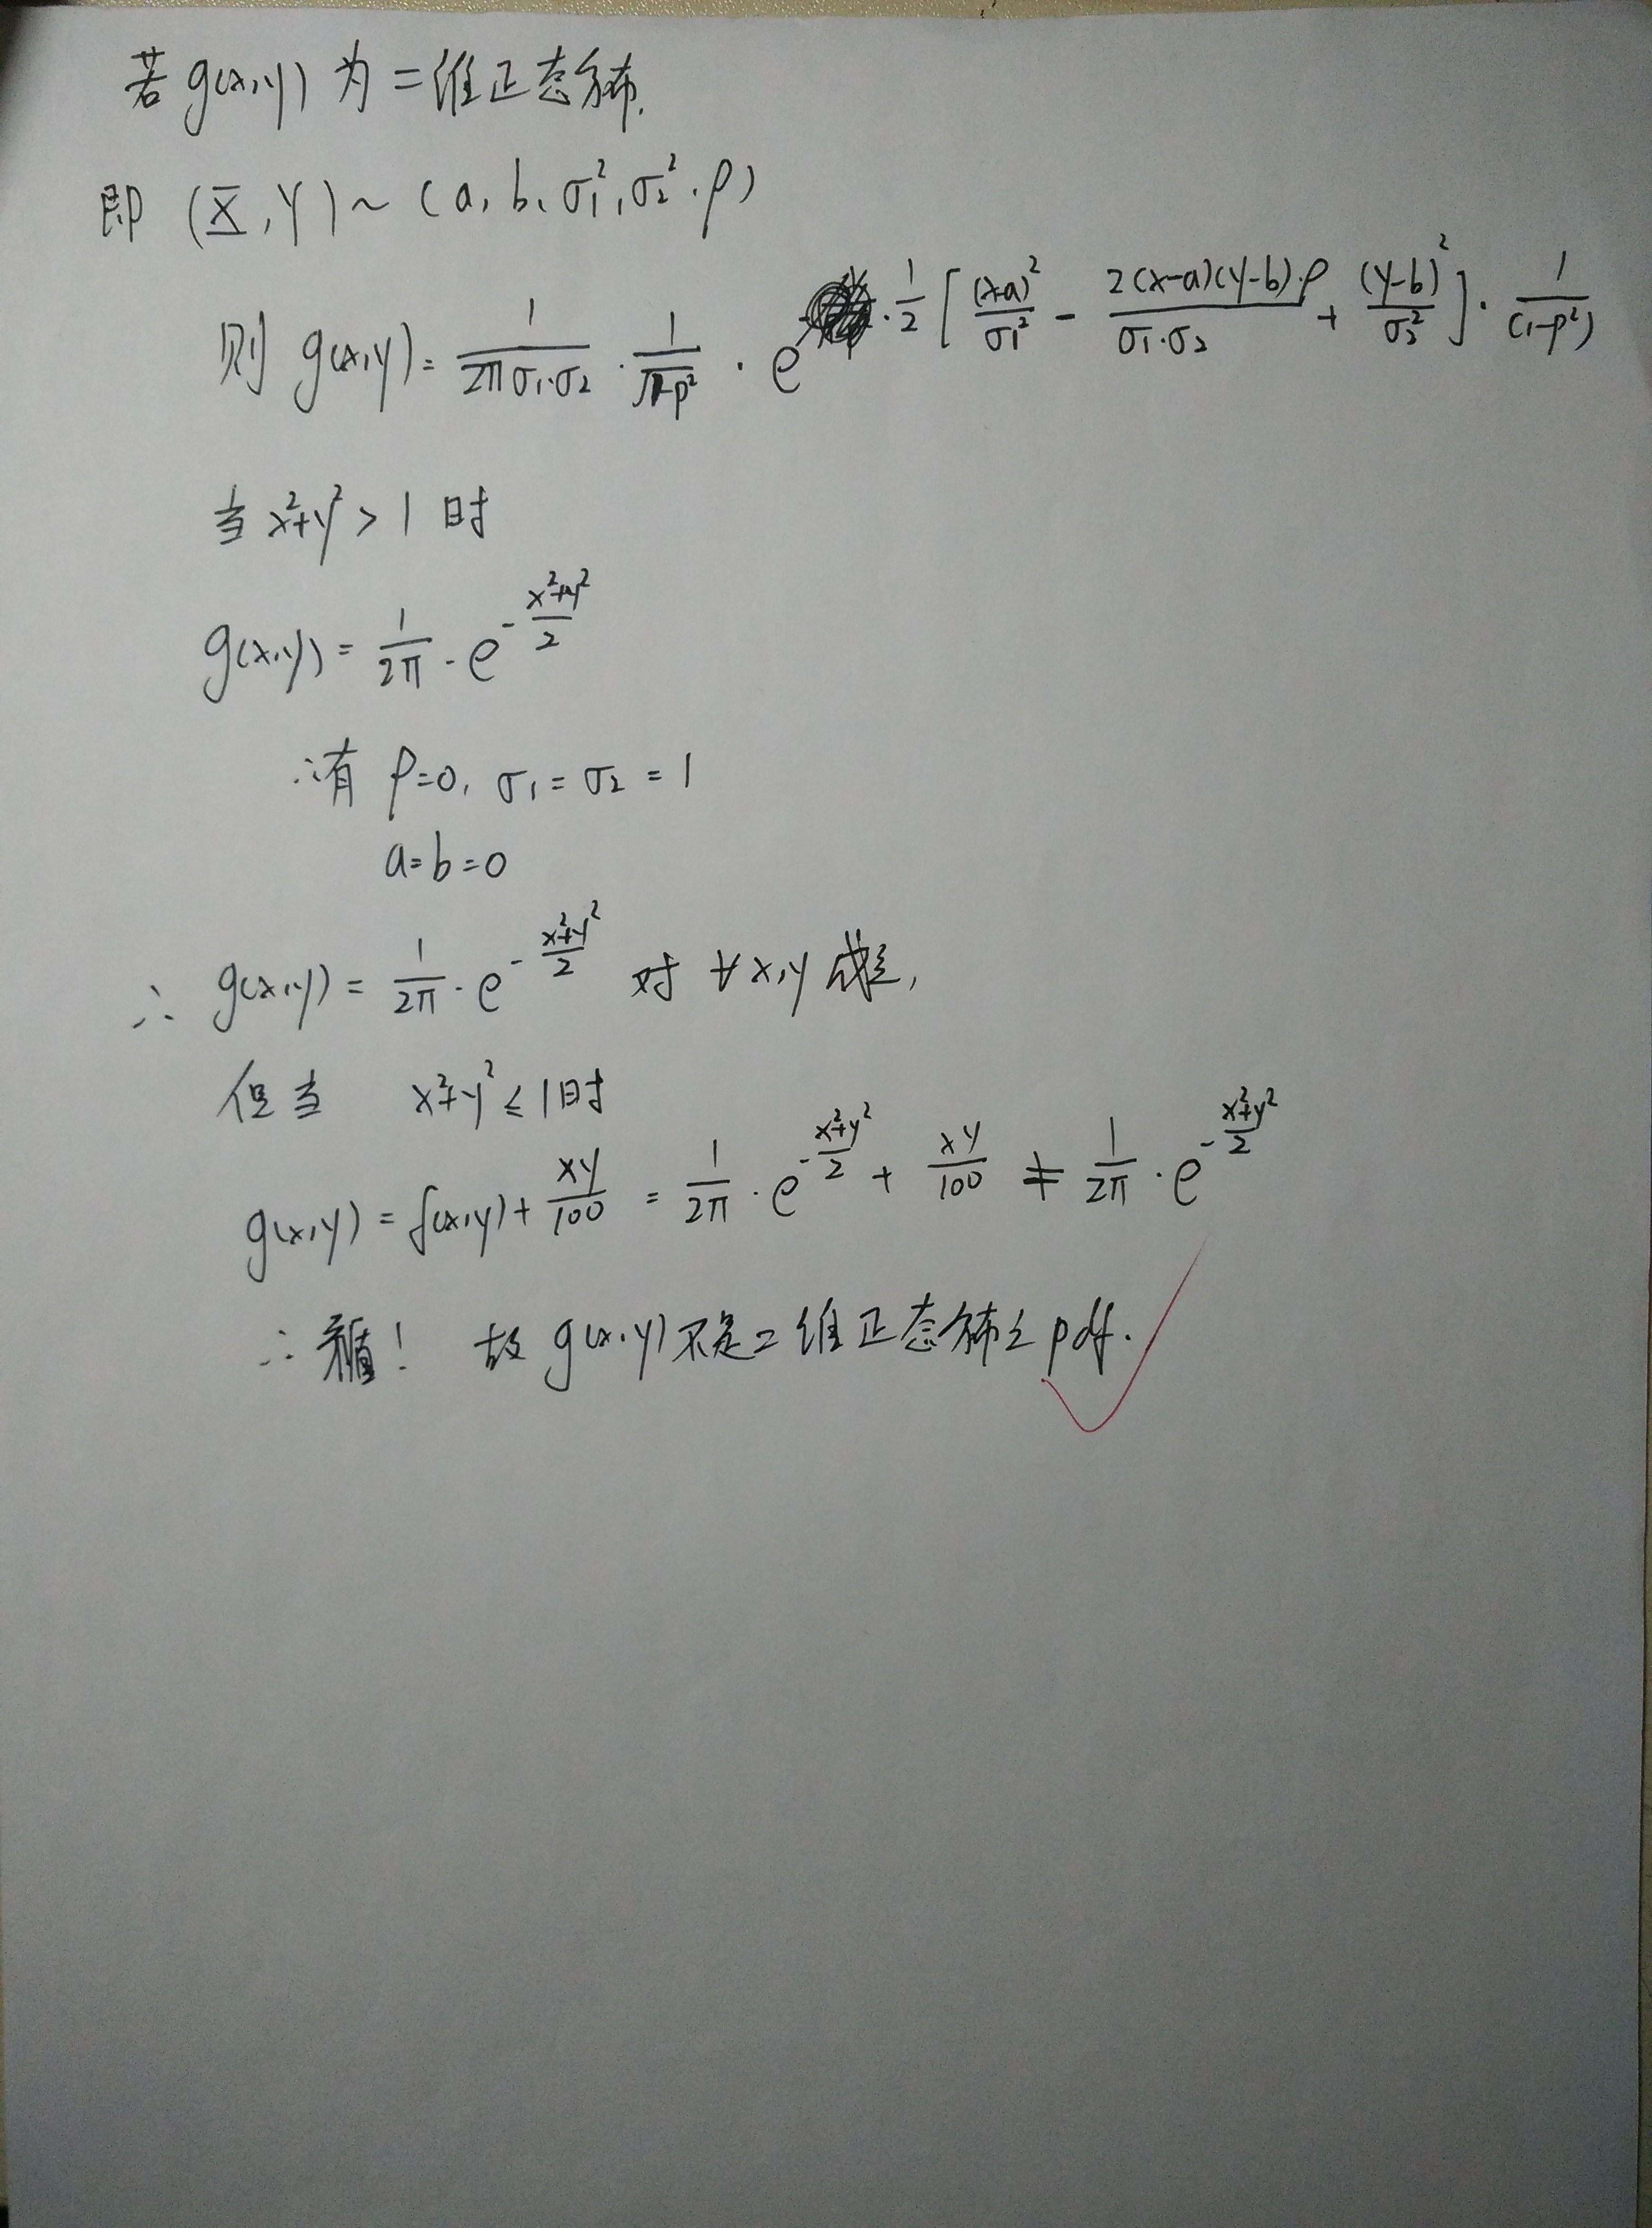 若 g(x,y) 为二维正态分布.
即 (X,Y)~(a,b,σ₁²,σ₂²,ρ)
则 g(x,y)= 1/(2πσ₁·σ₂) · 1/√(1-ρ²) · e^{-·1/2[(x-a)²/σ₁² - 2(x-a)(y-b)·ρ/(σ₁·σ₂) + (y-b)²/σ₂²]·1/(1-ρ²)}
当 x²+y²>1 时
g(x,y)= 1/2π · e^{-(x²+y²)/2}
∴有 ρ=0, σ₁=σ₂=1
a=b=0
∴ g(x,y)= 1/2π · e^{-(x²+y²)/2} 对 ∀x,y 成立,
但当 x²+y²≤1时
g(x,y)=f(x,y)+ xy/100 = 1/2π · e^{-(x²+y²)/2} + xy/100 ≠ 1/2π · e^{-(x²+y²)/2}
∴矛盾! 故 g(x,y)不是二维正态分布之pdf.